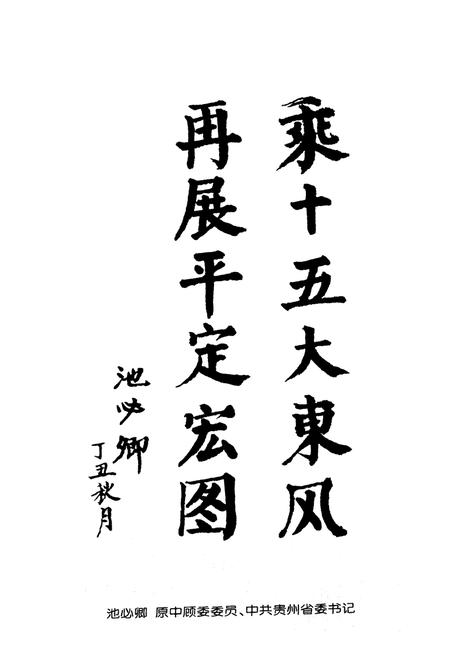 乘十五大東风
再展平定宏图
池必卿
丁丑秋月
池必卿 原中顾委委员、中共贵州省委书记